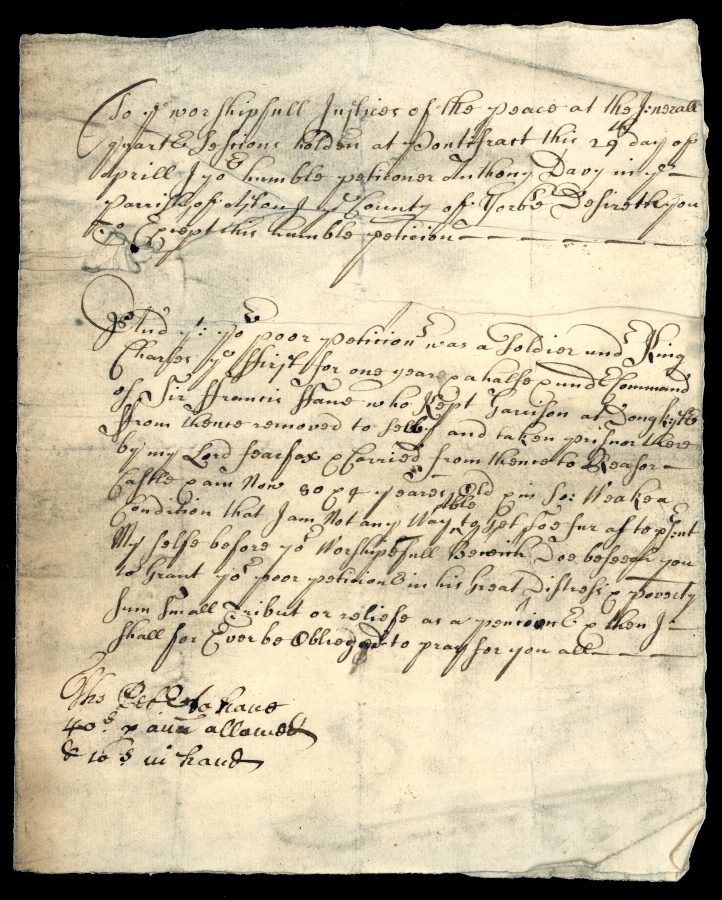 To ye worshipfull Justices of the peace at the Jenerall
quarter Sessions holden at Pontifract this 29th day of
aprill I yor humble peticoner Anthony Davy in ye
parrish of In ye County of Yorke Desireth you
To Except this humble peticion
And yt: yor poor peticionr was a Soldier undr King
Charles ye ffirst for one yeare & a halfe & undr Command
of Sir ffrancis ffane who Kept Garrison at
ffrom thence removed to Selby and taken prisnor there
by my Lord fearfax & Carried from thence to
Castle & am Now 80 & 4 yeares Old & in So: Weake a
Condition that I am Not any Way able to Get Soe fur as to psent
My selfe before yor Worshipfull Doe beseech you
to Grant yor poor peticionr in his Great Distress & poverty
sum small Tribut or reliefe as a pencion & then I
shall for Ever be Oblieged to pray for you all
The Petr to have
40s p ann allowed
& 10s in hand